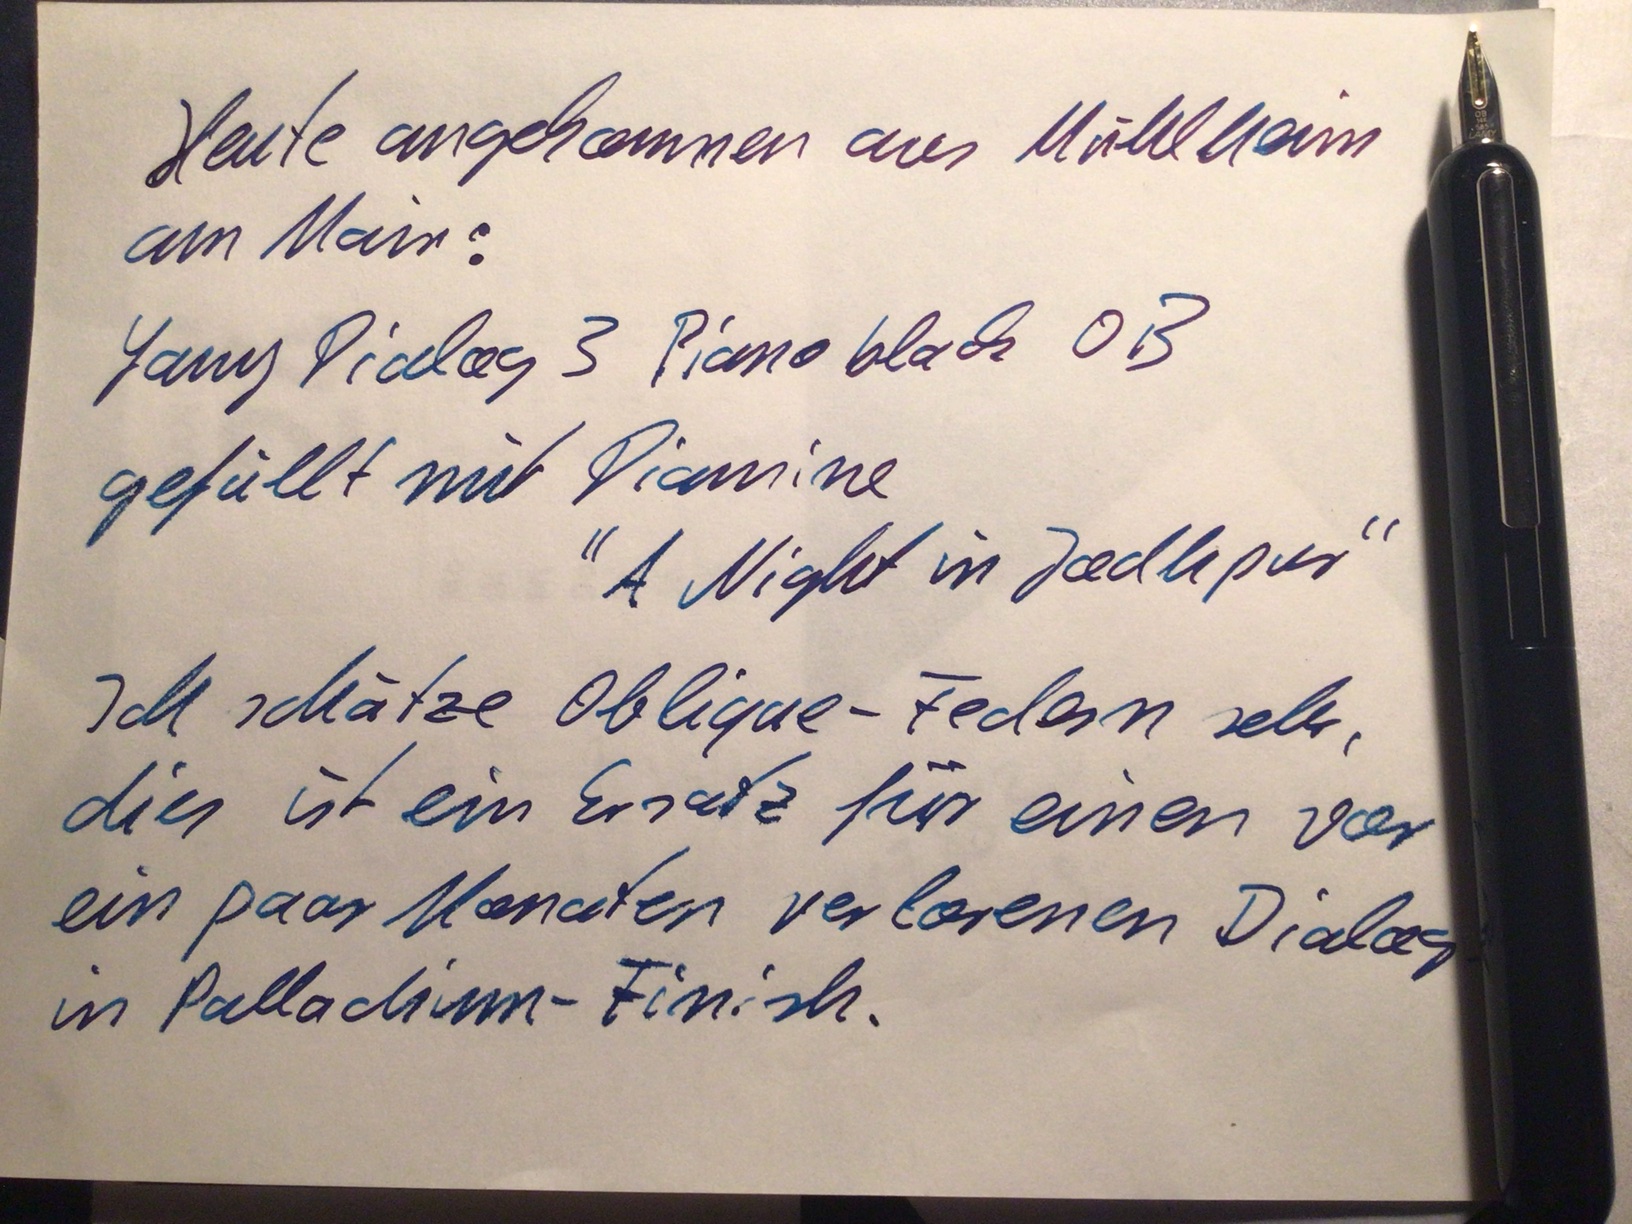 Heute angekommen aus Mühlheim
am Main:
Lamy Dialog 3 Piano black OB
gefüllt mit Diamine
"A Night in Jodhpur"
Ich schätze Oblique-Federn sehr,
dies ist ein Ersatz für einen vor
ein paar Monaten verlorenen Dialog
in Palladium-Finish.
OB
LAMY